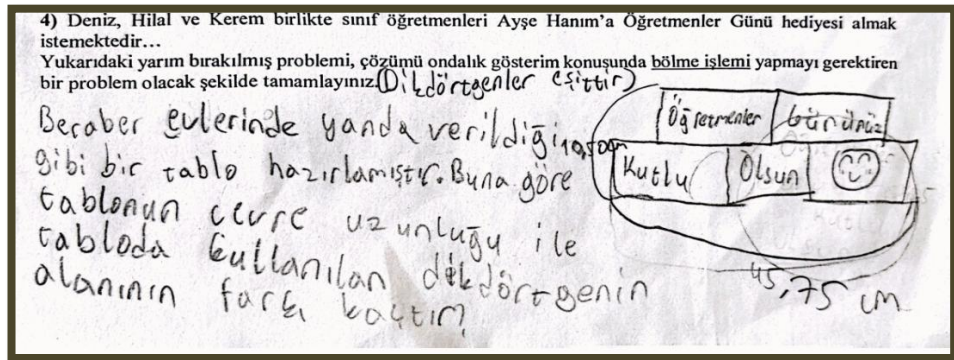 4) Deniz, Hilal ve Kerem birlikte sınıf öğretmenleri Ayşe Hanım'a Öğretmenler Günü hediyesi almak
istemektedir…
Yukarıdaki yarım bırakılmış problemi, çözümü ondalık gösterim konusunda bölme işlemi yapmayı gerektiren
bir problem olacak şekilde tamamlayınız. (Dikdörtgenler eşittir)
Beraber evlerinde yanda verildiği
gibi bir tablo hazırlamıştır. Buna göre
tablonun çevre uzunluğu ile
tabloda kullanılan dikdörtgenin
alanının farkı kaçtır?
Öğretmenler gününüz
Kutlu Olsun
45,75 cm